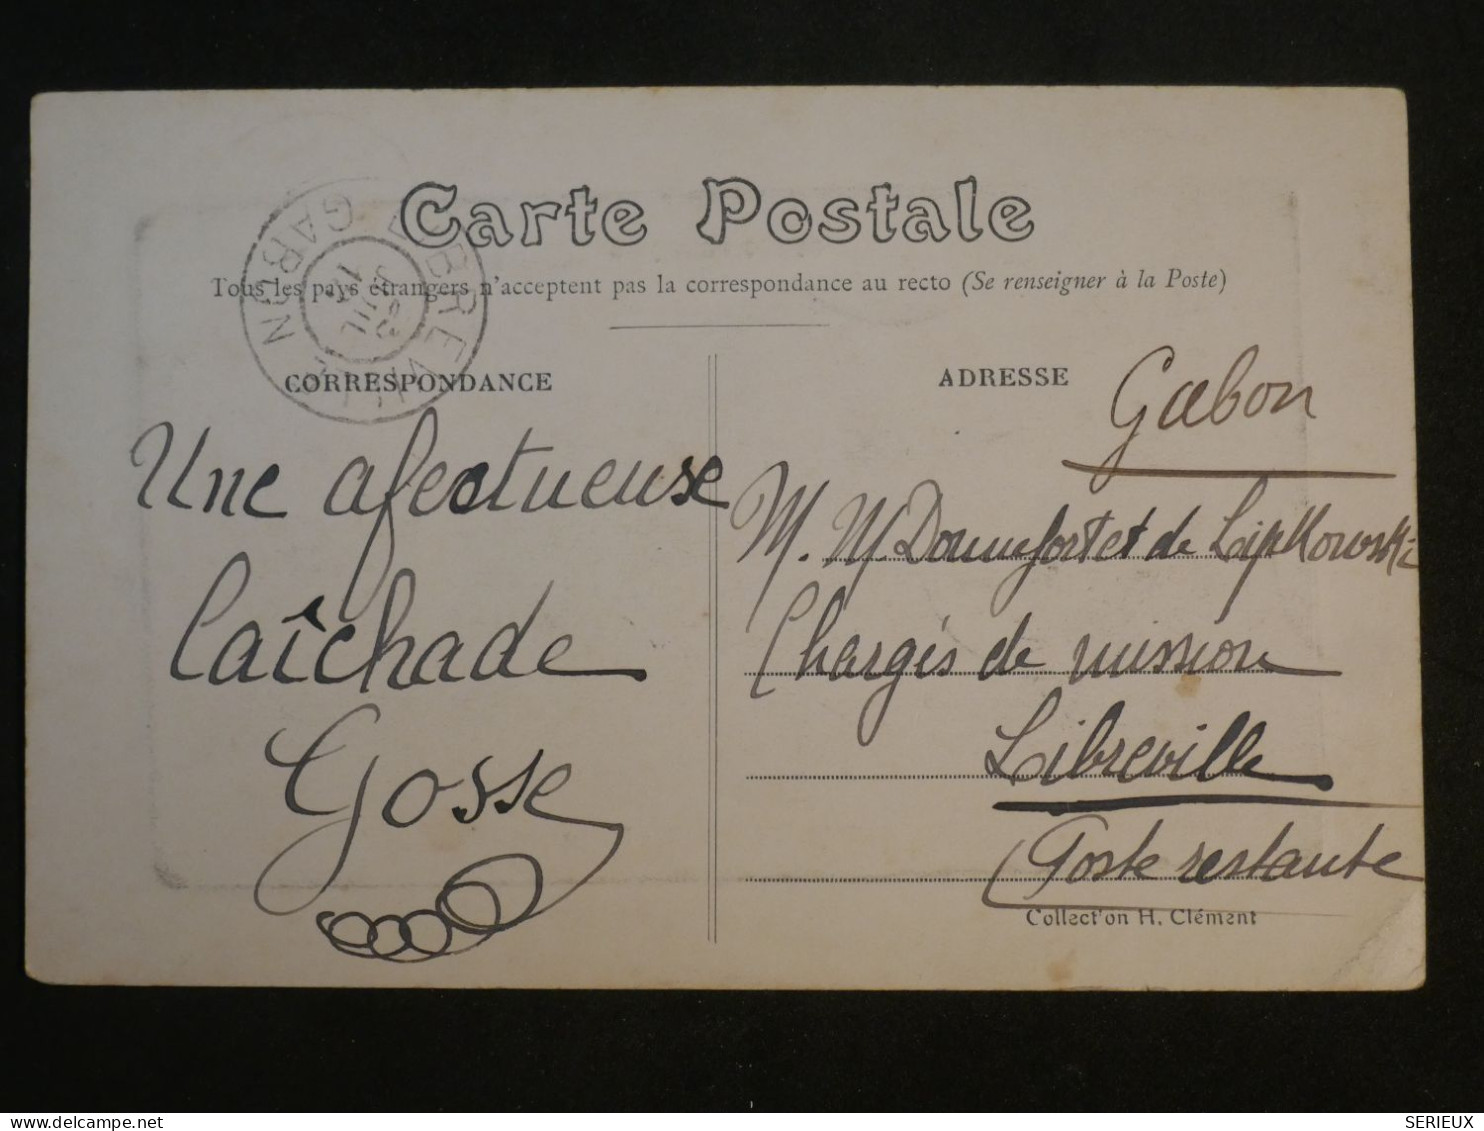 Carte Postale
Tous les pays étrangers n'acceptent pas la correspondance au recto (Se renseigner à la Poste)
LIBREVILLE
GABON
JUIL
CORRESPONDANCE
Une afectueuse
laîchade
Gosse
ADRESSE
Gabon
M. M. Donnefort et de Lipkowski
Chargés de mission
Libreville
Poste restante
Collect'on H. Clément
SERIEUX